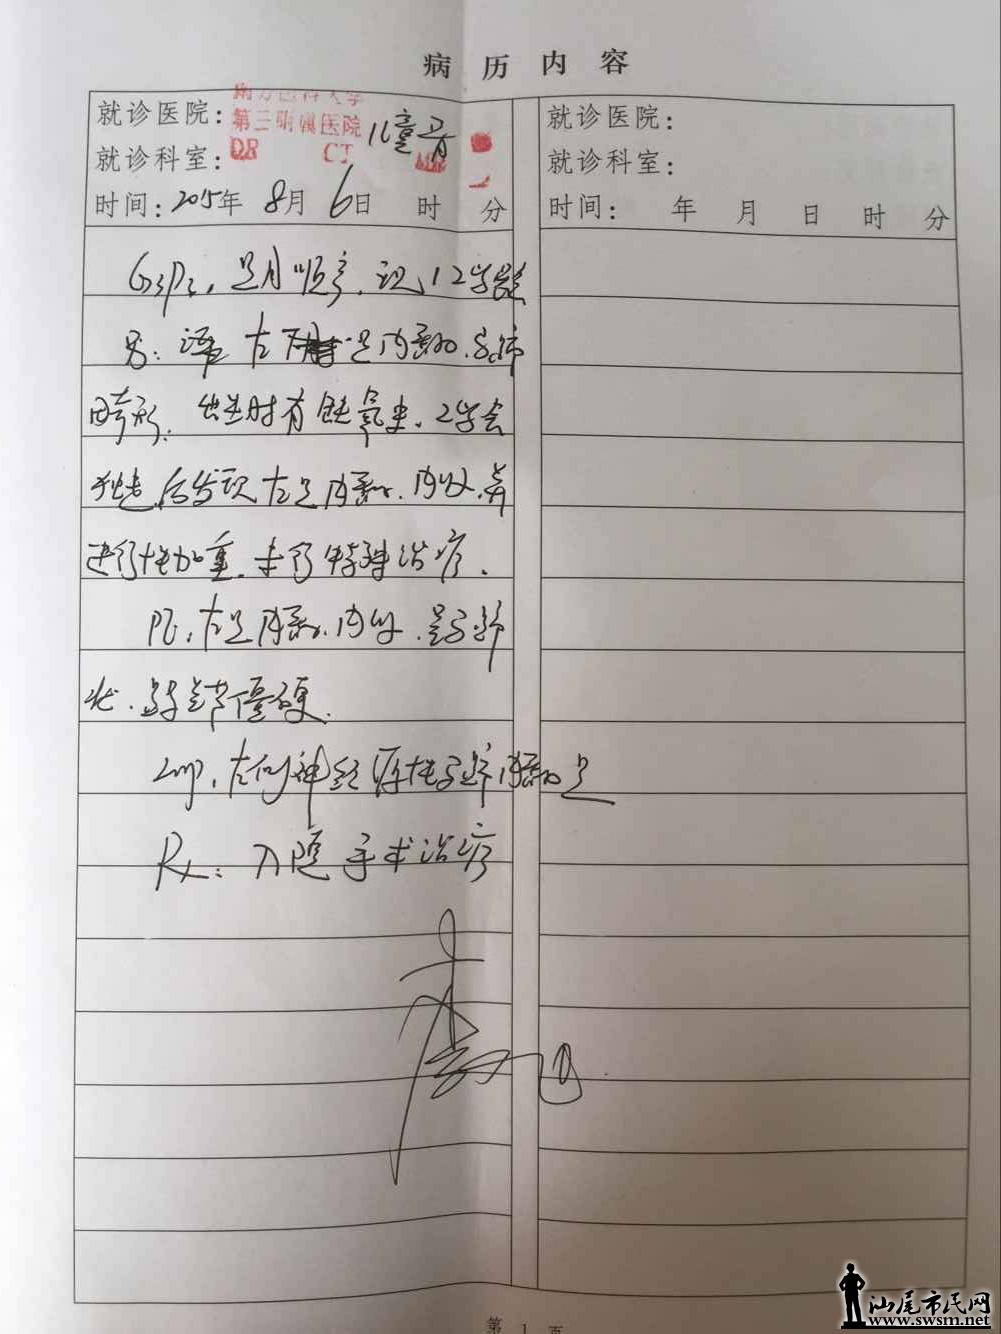 病 历 内 容
就诊医院: 南方医科大学
第三附属医院 儿童骨
就诊科室: DR CT
时间: 2015年 8月 6日 时 分
就诊医院:
就诊科室:
时间: 年 月 日 时 分
G3P2, 足月顺产, 现12岁
男: 左 足内翻
畸形, 出生时有缺氧史, 2岁会
独走, 后发现左足内翻、内收, 并
进行性加重, 未予特殊治疗.
PE: 左足内翻、内收、马蹄
状, 关节僵硬.
Imp: 左侧神经源性马蹄内翻足
Rx: 入院手术治疗
第 1 页
汕尾市民网
www.swsm.net